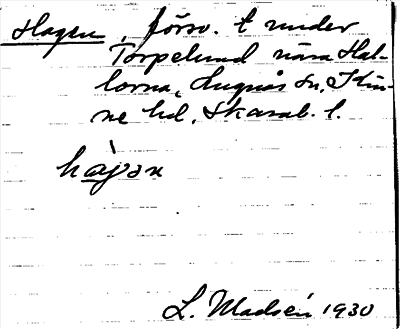 Hagen, försv. t under
Torpelund nära Hal-
lorna, Lugnås sn, Kin-
ne hd, Skarab. l.
hàgən
L. Madsén 1930